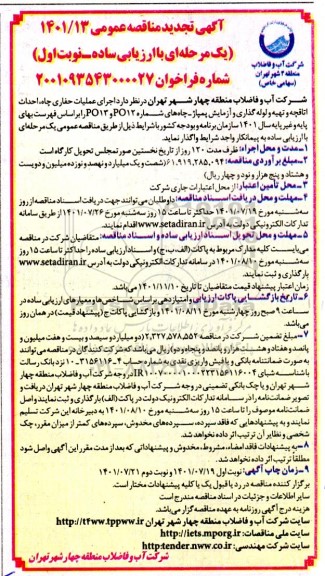 آگهی تجدید مناقصه عمومی ۱۴۰۱/۱۳
(یک مرحله‌ای با ارزیابی ساده_نوبت اول)
شماره فراخوان ۲۰۰۱۰۹۳۵۴۳۰۰۰۰۲۷
شرکت آب و فاضلاب
منطقه ۴ شهر تهران
(سهامی خاص)
شرکت آب و فاضلاب منطقه چهار شهر تهران در نظر دارد اجرای عملیات حفاری چاه، احداث
اتاقچه و تهیه و لوله‌گذاری و آزمایش پمپاژ ـ چاه‌های شماره PO۱۲ و PO۱۳ را بر اساس فهرست بهای
پایه و غیر پایه سال ۱۴۰۱ سازمان برنامه و بودجه کشور با شرایط ذیل از طریق مناقصه عمومی یک مرحله‌ای
با ارزیابی ساده به پیمانکار واجد شرایط واگذار نماید.
۱ـ مدت و محل اجراء: ظرف مدت ۱۲۰ روز از تاریخ نخستین صورتمجلس تحویل کارگاه است
۲ـ مبلغ برآوردی مناقصه: ۶۱,۹۱۹,۲۸۵,۰۹۴ (شصت و یک میلیارد و نهصد و نوزده میلیون و دویست
و هشتاد و پنج هزار و نود و چهار ریال)
۳ـ محل تأمین اعتبار: از محل اعتبارات جاری شرکت
۴ـ مهلت و محل دریافت اسناد مناقصه: داوطلبان می‌توانند جهت دریافت اسناد مناقصه از روز
سه‌شنبه مورخ ۱۴۰۱/۰۷/۱۹ حداکثر تا ساعت ۱۵ روز سه‌شنبه مورخ ۱۴۰۱/۰۷/۲۶ از طریق سامانه
تدارکات الکترونیکی دولت به آدرس www.setadiran.ir اقدام نمایند.
۵ـ مهلت و محل تحویل اسناد ارزیابی ساده و اسناد مناقصه: متقاضیان شرکت در مناقصه
می‌بایست کلیه مدارک مربوط به پاکات (الف، ب، ج) و اسناد ارزیابی ساده را حداکثر تا ساعت ۱۵ روز
سه‌شنبه مورخ ۱۴۰۱/۰۸/۱۰ در سامانه تدارکات الکترونیکی دولت به آدرس www.setadiran.ir
بارگذاری و ثبت نمایند.
زمان اعتبار پیشنهاد قیمت متقاضیان تا تاریخ ۱۴۰۱/۱۱/۱۰ می‌باشد
۶ـ تاریخ بازگشایی پاکات ارزیابی و امتیازدهی بر اساس شاخص‌ها و معیارهای ارزیابی ساده در
ساعت ۹ صبح روز چهارشنبه مورخ ۱۴۰۱/۰۸/۱۱ و بازگشایی پاکات ج (پیشنهاد قیمت) در همان روز
می‌باشد.
۷ـ مبلغ تضمین شرکت در مناقصه ۲,۳۲۷,۵۷۸,۵۵۲ (دو میلیارد و سیصد و بیست و هفت میلیون و
پانصد و هفتاد و هشت هزار و پانصد و پنجاه و دو) ریال می‌باشد که شرکت‌کنندگان در مناقصه می‌توانند
به صورت ضمانتنامه بانکی و یا فیش واریزی نقدی به شماره حساب نزد بانک رسالت
باشناسه شبای در وجه شرکت آب و فاضلاب منطقه چهار
شهر تهران و یا چک بانکی تضمینی در وجه شرکت آب و فاضلاب منطقه چهار شهر تهران دریافت و
تصویر ضمانت‌نامه را در سامانه تدارکات الکترونیک دولت در پاکت (الف) بارگذاری و ثبت نمایند و اصل
ضمانت‌نامه موصوف را تا ساعت ۱۵ روز سه‌شنبه مورخ ۱۴۰۱/۰۸/۱۰ به دبیرخانه این شرکت تسلیم
نمایند و به پیشنهادهایی که فاقد سپرده، سپرده‌های مخدوش، سپرده‌های کمتر از میزان مقرر، چک
شخصی و نظایر آن ترتیب اثر داده نخواهد شد.
۸ـ به پیشنهادات فاقد امضاء، مشروط، مخدوش و پیشنهاداتی که بعد از مدت مقرر این آگهی واصل شود
مطلقاً ترتیب اثر داده نخواهد شد.
۹ـ زمان چاپ آگهی: نوبت اول ۱۴۰۱/۰۷/۱۹ و نوبت دوم ۱۴۰۱/۰۷/۲۱
برگزار کننده مناقصه در رد یا قبول یک یا کلیه پیشنهادات مختار است.
سایر اطلاعات و جزئیات در اسناد مناقصه مندرج است
هزینه درج آگهی روزنامه به عهده مناقصه گزار می‌باشد.
سایت شرکت آب و فاضلاب منطقه چهار شهر تهران http://tfww.tppww.ir
سایت ملی مناقصات: http://iets.mporg.ir
سایت شرکت مهندسی: http:tender.nww.co.ir
شرکت آب و فاضلاب منطقه چهار شهر تهران